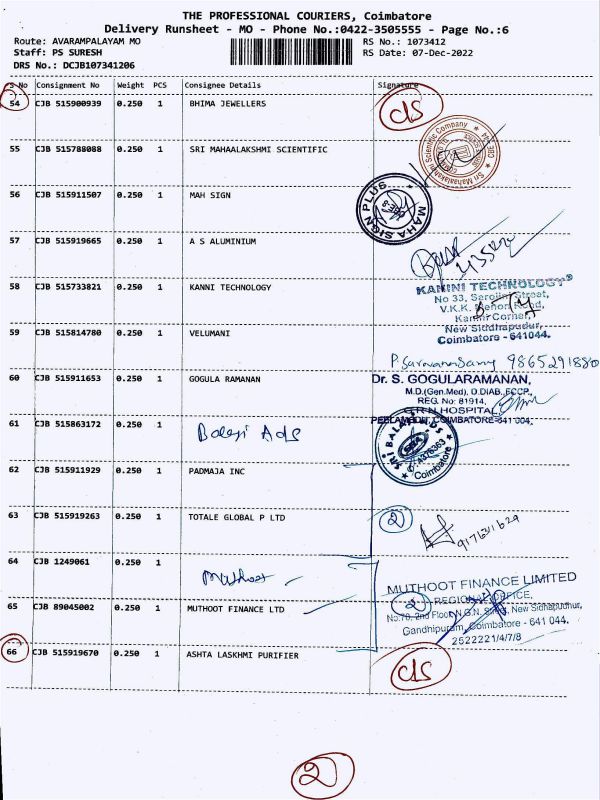 THE PROFESSIONAL COURIERS, Coimbatore
Delivery Runsheet - MO - Phone No.:0422-3505555 - Page No.:6
Route: AVARAMPALAYAM MO
Staff: PS SURESH
DRS No.: DCJB107341206
RS No.: 1073412
RS Date: 07-Dec-2022
S No Consignment No Weight PCS Consignee Details Signature
54 CJB 515900939 0.250 1 BHIMA JEWELLERS
55 CJB 515788088 0.250 1 SRI MAHAALAKSHMI SCIENTIFIC
Sri Mahaalakshmi Scientific Company
56 CJB 515911507 0.250 1 MAH SIGN
MAHA SIGN PLUS
57 CJB 515919665 0.250 1 A S ALUMINIUM
58 CJB 515733821 0.250 1 KANNI TECHNOLOGY
KANINI TECHNOLOGY
No 33, Sarojini Street,
V.K.K. Menon Road,
Kannir Corner,
New Siddhapudur,
Coimbatore - 641044.
59 CJB 515814780 0.250 1 VELUMANI
9865291880
60 CJB 515911653 0.250 1 GOGULA RAMANAN
Dr. S. GOGULARAMANAN,
M.D.(Gen.Med), D.DIAB.,FCCP.,
REG. No: 81914,
G.R.N HOSPITAL
PEELAMEDU, COIMBATORE-641 004.
61 CJB 515863172 0.250 1 Balaji Ads
SRI BALAJI ADS
Coimbatore
62 CJB 515911929 0.250 1 PADMAJA INC
63 CJB 515919263 0.250 1 TOTALE GLOBAL P LTD
2
64 CJB 1249061 0.250 1 Muthoot
65 CJB 89045002 0.250 1 MUTHOOT FINANCE LTD
2
MUTHOOT FINANCE LIMITED
REGIONAL OFFICE,
No:70, 2nd Floor, N.G.N. Street, New Sidhapudhur,
Gandhipuram, Coimbatore - 641 044.
2522221/4/7/8
66 CJB 515919670 0.250 1 ASHTA LASKHMI PURIFIER
2